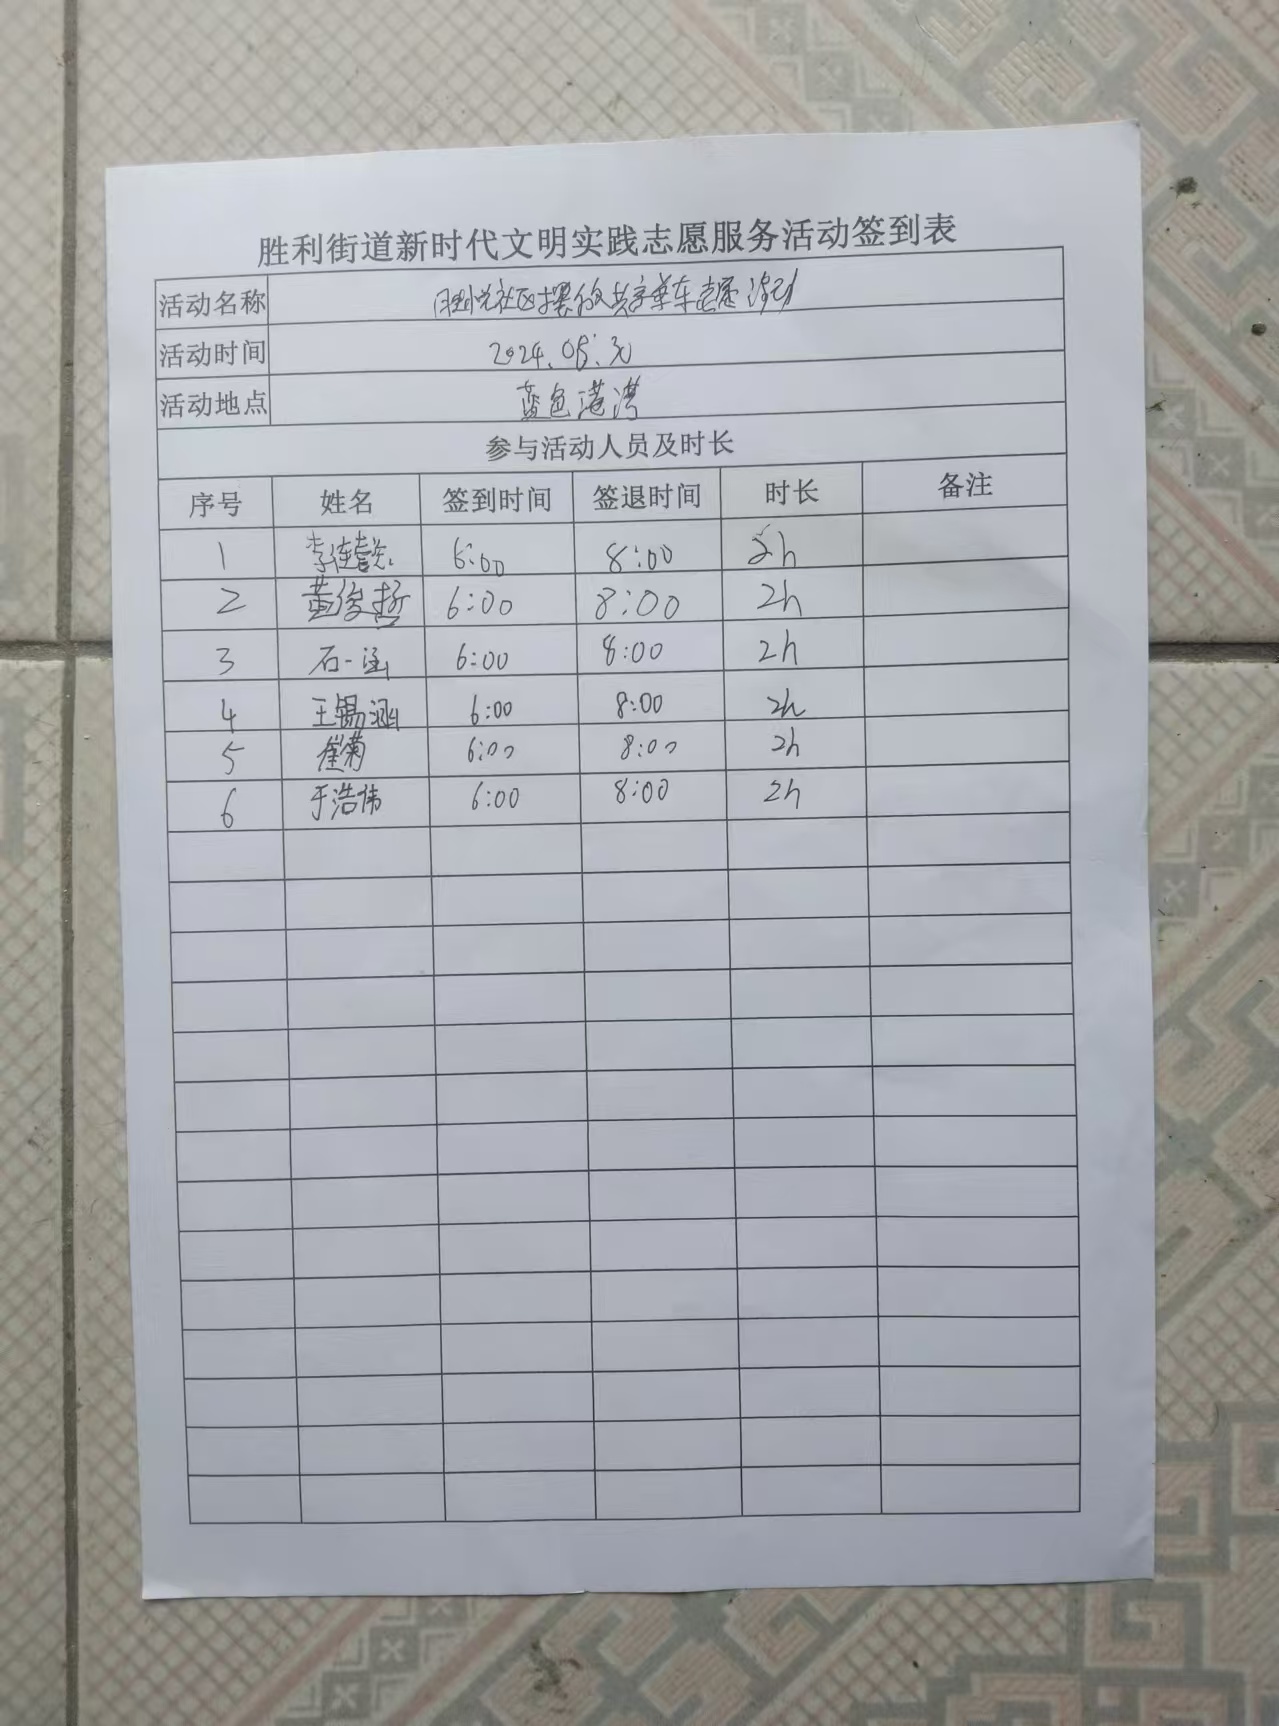 胜利街道新时代文明实践志愿服务活动签到表
活动名称 社区摆放共享单车志愿活动
活动时间 2024.08.30
活动地点 蓝色港湾
参与活动人员及时长
序号 姓名 签到时间 签退时间 时长 备注
1 李连 6:00 8:00 2h
2 黄俊哲 6:00 8:00 2h
3 石一涵 6:00 8:00 2h
4 王锡涵 6:00 8:00 2h
5 崔菊 6:00 8:00 2h
6 于浩伟 6:00 8:00 2h